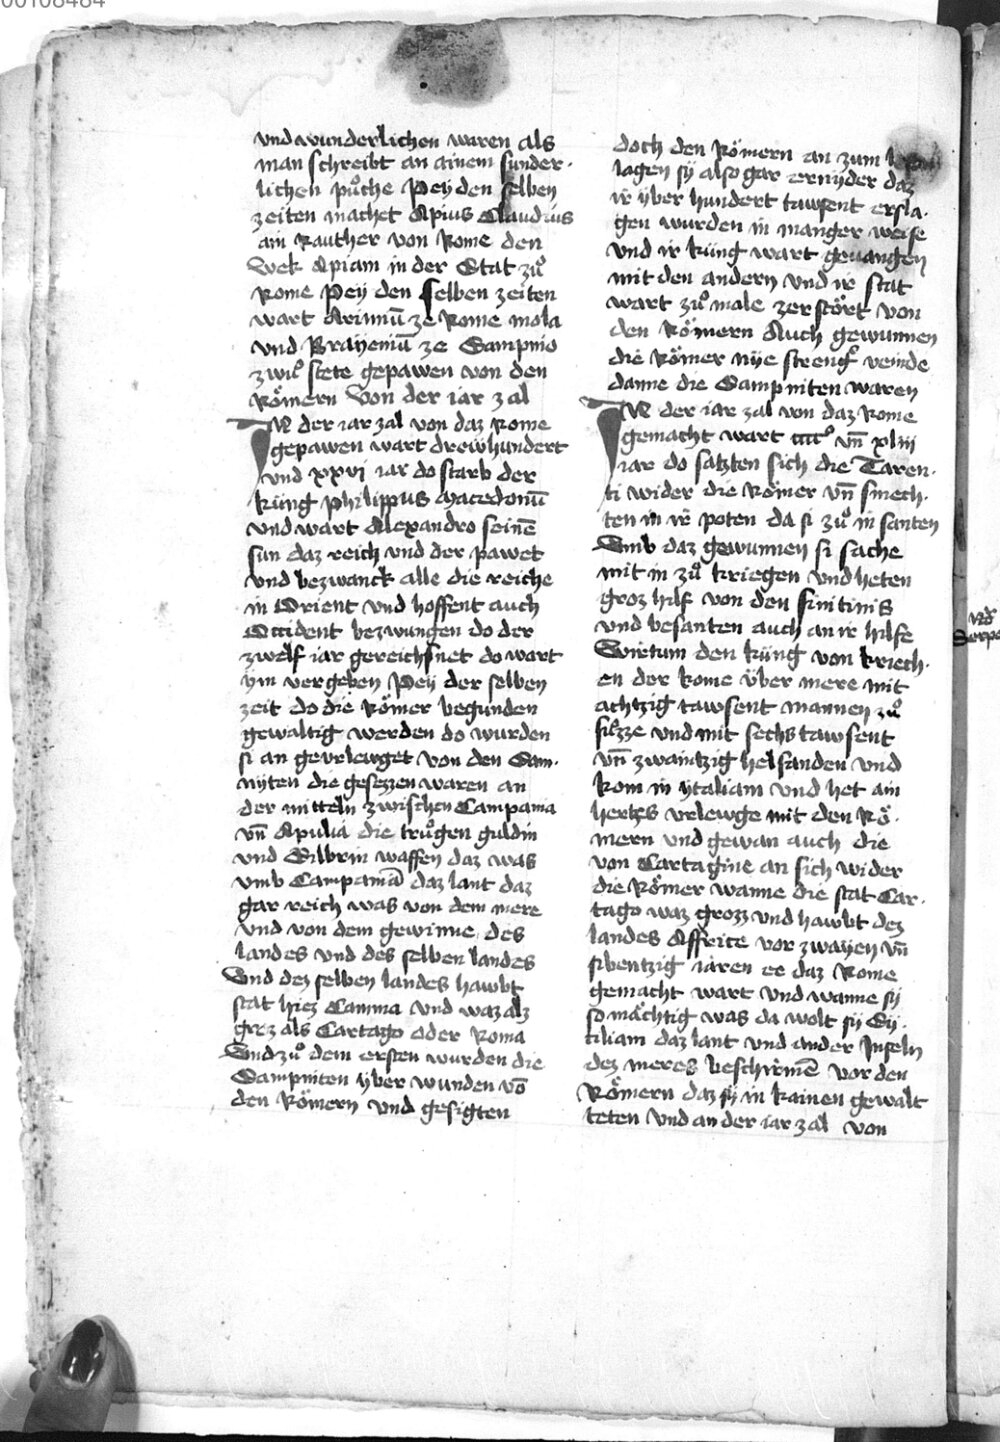 00108484
vnd wunderlichen waren als
man schreibt an ainem sunder-
lichen půche Peÿ den selben
zeiten machet Apius Claudius
ain Rauther von Rome den
Wek Apiam in der Stat zů
Rome Peÿ den selben zeiten
wart Ariminū ze Rome mola
vnd ze Sampnio
stete gepawen von den
Römern Von der iar zal
IN der iar zal von daz Rome
gepawen wart drewhundert
vnd xxvi iar do starb der
küng philippus Macedonū
vnd wart Alexandro seinē
sun daz reich vnd der pawet
vnd bezwanck alle die reiche
in Orient vnd hoffent auch
Occident bezwungen do der
zwelf iar gereichsnet do wart
ÿm vergeben Peÿ der selben
zeit do die Römer begunden
gewaltig werden do wurden
si an geurlewget von den Sam-
nÿten die gesezzen waren an
der mitteln zwischen Campania
vn̄ Apulia die trůgen guldin
vnd Silbrin waffen daz was
vmb Campaniā daz lant daz
gar reich was von dem mere
vnd von dem gewinne des
landes vnd des selben landes
Vnd dez selben landes hawbt
stat hiez Camma vnd waz alz
groz als Cartago oder Roma
Vnd zů dem ersten wurden die
Sampniten ÿber wunden vō
den Römern vnd gesigten
doch den Römern an zum
lagen sÿ also gar ernÿder daz
ir ÿber hundert tawsent ersla-
gen wurden in manger weise
vnd ir küng wart geuangen
mit den andern vnd ir stat
wart zů male zerstört von
den Römern Auch gewunnen
die Römer nÿe strenger veinde
danne die Sampniten waren
IN der iar zal von daz Rome
gemacht wart cccc° vn̄ xliii
iar do saczten sich die Taren-
ti wider die Römer vn̄ smech-
ten in ir poten da si zů in santen
Vmb daz gewunnen si sache
mit in zů kriegen vnd heten
groz hilf von den finitinis
vnd besanten auch an ir hilfe
den küng von kriech-
en der kome ÿber mere mit
achtzig tawsent mannen zů
füzze vnd mit sechs tawsent
vn̄ zwaintzig helfanden vnd
kom in ÿtaliam vnd het ain
hertes vrlewge mit den Rö-
mern vnd gewan auch die
von Cartagine an sich wider
die Römer wanne die stat Car-
tago waz grozz vnd hawbt dez
landes Affrice vor zwaÿen vn̄
sibentzig iaren ee daz Rome
gemacht wart vnd wanne sÿ
so mächtig was da wolt sÿ Sÿ-
ciliam daz lant vnd ander Inseln
dez meres beschirmē vor den
Römern daz sÿ in kainen gewalt
teten vnd an der iar zal von